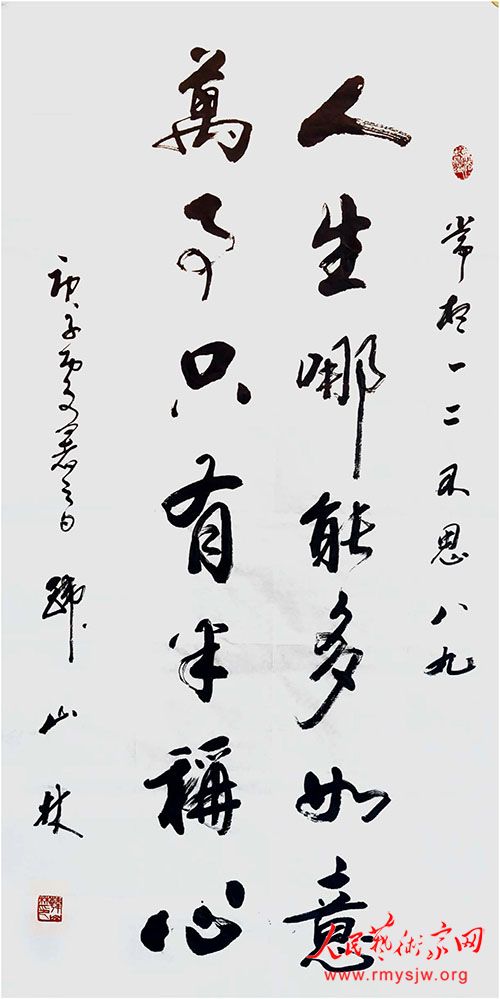 常想一二不思八九
人生哪能多如意
萬事只有半稱心
庚子夏之日 韩山林
人民藝術家网
www.rmysjw.org